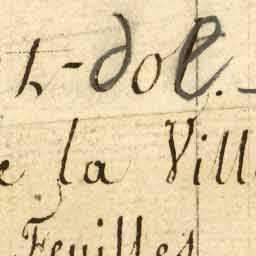 t-dol.
e la Vill
Feuilles